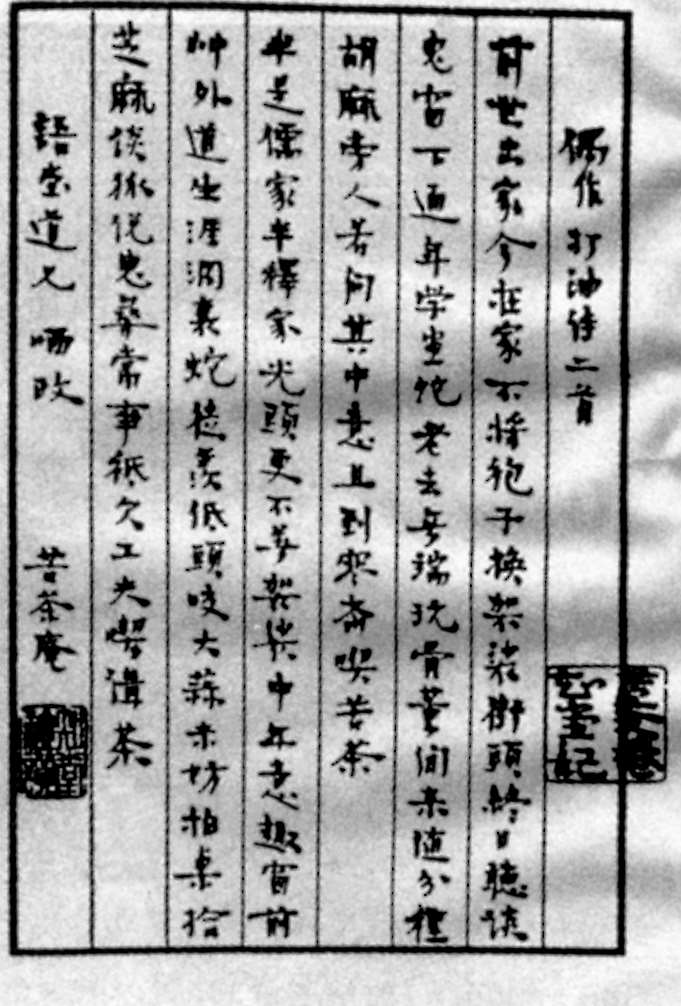 偶作打油诗二首
前世出家今在家不将袍子换袈裟街頭終日聴谈
鬼窗下通年学画蛇老去無端玩骨董闲来随分種
胡麻旁人若问其中意且到寒斎喫苦茶
半是儒家半釋家光頭更不著袈裟中年意趣窗前
艸外道生涯洞裏蛇徒羡低頭咬大蒜未妨拍桌拾
芝麻谈狐说鬼尋常事祇欠工夫喫講茶
語堂道兄哂政
苦茶庵